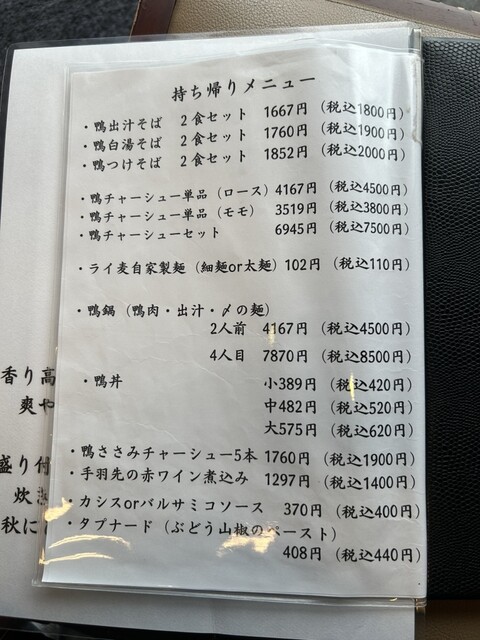 持ち帰りメニュー
・鴨出汁そば 2食セット 1667円(税込1800円)
・鴨白湯そば 2食セット 1760円(税込1900円)
・鴨つけそば 2食セット 1852円(税込2000円)
・鴨チャーシュー単品(ロース)4167円(税込4500円)
・鴨チャーシュー単品(モモ) 3519円(税込3800円)
・鴨チャーシューセット 6945円(税込7500円)
・ライ麦自家製麺(細麺or太麺)102円(税込110円)
・鴨鍋(鴨肉・出汁・〆の麺)
2人前 4167円(税込4500円)
4人目 7870円(税込8500円)
・鴨丼 小389円(税込420円)
中482円(税込520円)
大575円(税込620円)
・鴨ささみチャーシュー5本 1760円(税込1900円)
・手羽先の赤ワイン煮込み 1297円(税込1400円)
・カシスorバルサミコソース 370円(税込400円)
・タプナード(ぶどう山椒のペースト)
408円(税込440円)
香り高
爽や
盛り付
炊
秋に